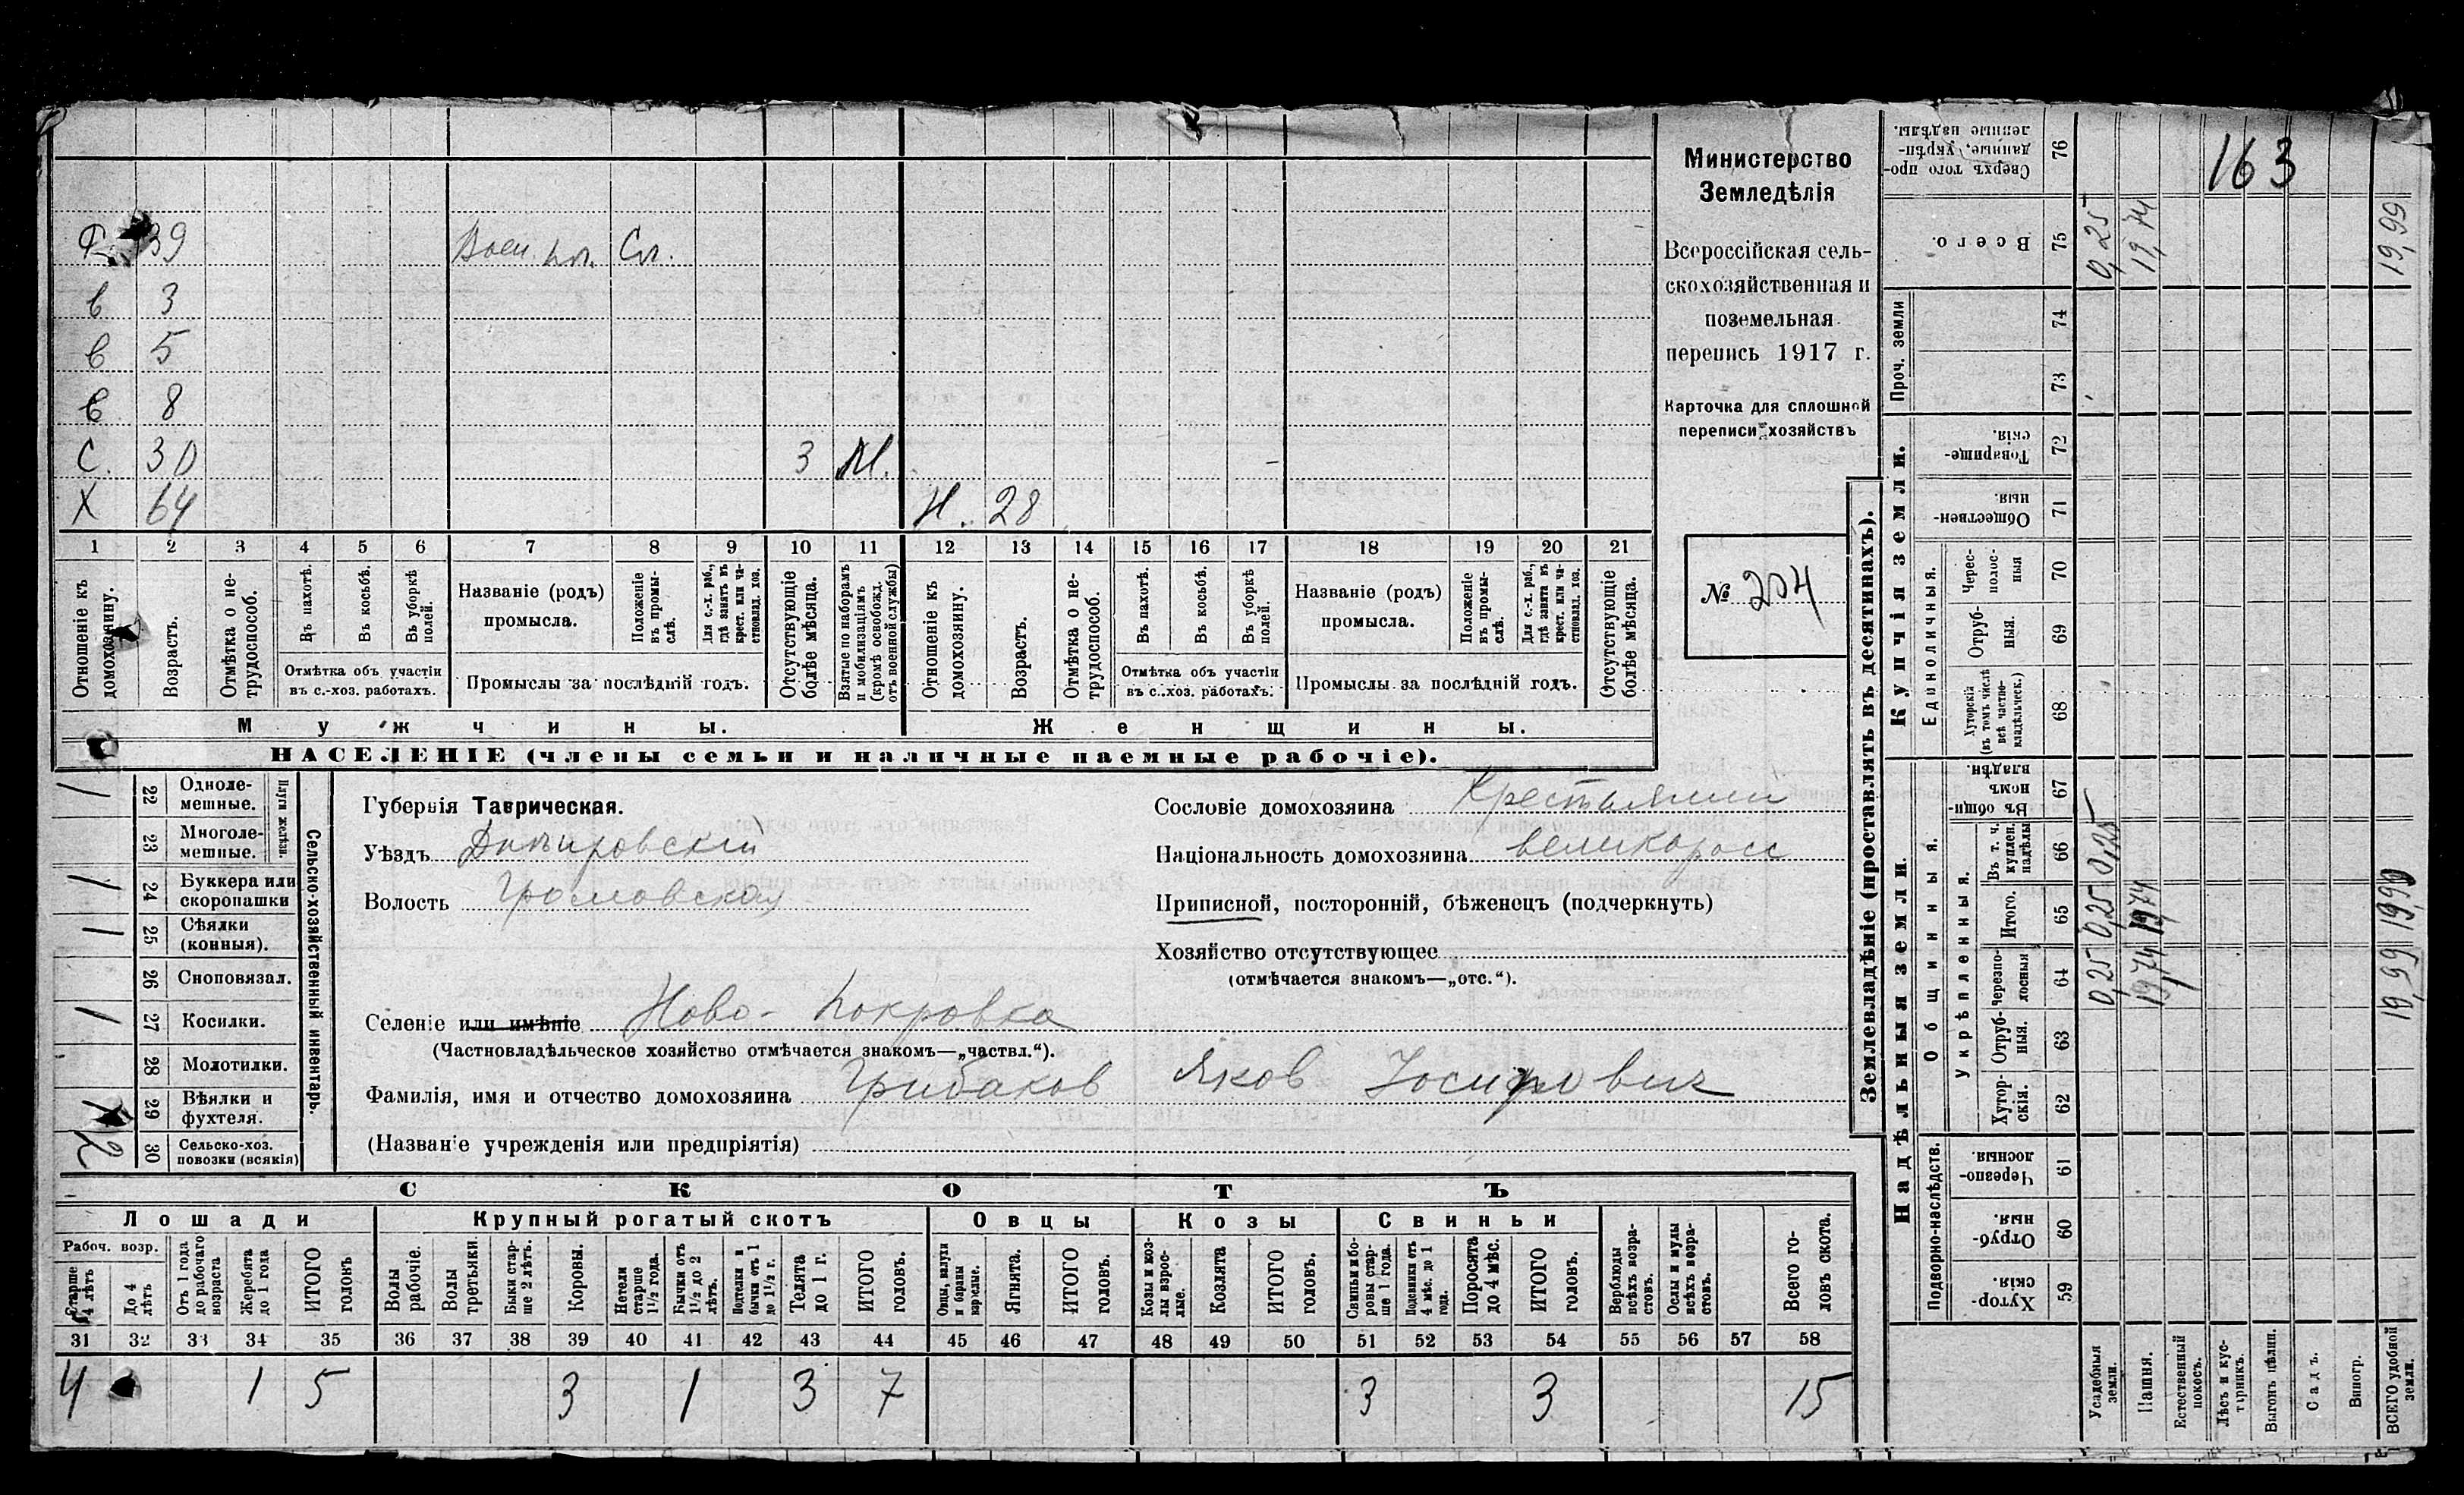 Ф. 39 Воен. пл. Сл.
в 3
в 5
в 8
С. 30 3 М.
Х 64 Н. 28
1 2 3 4 5 6 7 8 9 10 11 12 13 14 15 16 17 18 19 20 21
Отношеніе къ домохозяину.
Возрастъ.
Отмѣтка о не-
трудоспособ.
Въ пахотѣ.
Въ косьбѣ.
Въ уборкѣ
полей.
Отмѣтка объ участіи
въ с.-хоз. работахъ.
Названіе (родъ)
промысла.
Положеніе
въ промы-
слѣ.
Для с.-х. раб.,
гдѣ занятъ въ
крест. или ча-
стновлад. хоз.
Промыслы за послѣдній годъ.
Отсутствующіе
болѣе мѣсяца.
Взятые по наборамъ
и мобилизаціямъ
(кромѣ освобожд.
отъ военной службы)
Отношеніе къ
домохозяину.
Возрастъ.
Отмѣтка о не-
трудоспособ.
Въ пахотѣ.
Въ косьбѣ.
Въ уборкѣ
полей.
Отмѣтка объ участіи
въ с.-хоз. работахъ.
Названіе (родъ)
промысла.
Положеніе
въ промы-
слѣ.
Для с.-х. раб.,
гдѣ занята въ
крест. или ча-
стновлад. хоз.
Промыслы за послѣдній годъ.
Отсутствующіе
болѣе мѣсяца.
Мужчины.
Женщины.
НАСЕЛЕНІЕ (члены семьи и наличные наемные рабочіе).
Министерство
Земледѣлія
Всероссійская сель-
скохозяйственная и
поземельная
перепись 1917 г.
Карточка для сплошной
переписи хозяйствъ
№ 204
Сельско-хозяйственный инвентарь.
Плуги желѣзн.
22 Одноле-
мешные.
1
23 Многоле-
мешные.
24 Буккера или
скоропашки
1
25 Сѣялки
(конныя).
1
26 Сноповязал.
27 Косилки.
1
28 Молотилки.
29 Вѣялки и
фухтеля.
1
30 Сельско-хоз.
повозки (всякія)
2
Губернія Таврическая.
Уѣздъ Днѣпровскій
Волость Громовская
Сословіе домохозяина Крестьянин
Національность домохозяина великоросс
Приписной, посторонній, бѣженецъ (подчеркнуть)
Хозяйство отсутствующее
(отмѣчается знакомъ—„отс.“).
Селеніе или имѣніе Ново-Покровка
(Частновладѣльческое хозяйство отмѣчается знакомъ—„частвл.“).
Фамилія, имя и отчество домохозяина Грибаков Яков Іосифович
(Названіе учрежденія или предпріятія)
СКОТЪ
Лошади
Крупный рогатый скотъ
Овцы
Козы
Свиньи
Рабоч. возр.
Старше
4 лѣтъ
До 4
лѣтъ
Отъ 1 года
до рабочаго
возраста
Жеребята
до 1 года
ИТОГО
головъ
Волы
рабочіе.
Волы
третьяки.
Быки стар-
ше 2 лѣтъ.
Коровы.
Нетели
старше
1½ года.
Бычки отъ
1½ до 2
лѣтъ.
Подтелки и
бычки отъ 1
до 1½ г.
Телята
до 1 г.
ИТОГО
головъ.
Овцы, валухи
и бараны
взрослые.
Ягнята.
ИТОГО
головъ.
Козы и коз-
лы взрос-
лые.
Козлята
ИТОГО
головъ.
Свиньи и бо-
ровы стар-
ше 1 года.
Подсвинки отъ
4 мѣс. до 1
года.
Поросята
до 4 мѣс.
ИТОГО
головъ.
Верблюды
всѣхъ возра-
стовъ.
Ослы и мулы
всѣхъ возра-
стовъ.
Всего го-
ловъ скота.
31 32 33 34 35 36 37 38 39 40 41 42 43 44 45 46 47 48 49 50 51 52 53 54 55 56 57 58
4 1 5 3 1 3 7 3 3 15
Землевладѣніе (проставлять въ десятинахъ).
Надѣльныя земли.
Купчія земли.
Подворно-наслѣдств.
Общинныя.
Укрѣпленныя.
Единоличныя.
Проч. земли
Хутор-
скія.
59
Отруб-
ныя.
60
Черезпо-
лосныя
61
Хутор-
скія.
62
Отруб-
ныя.
63
Черезпо-
лосныя
64
Итого.
65
Въ т. ч.
куплен.
надѣлы
66
Въ общин-
номъ
владѣн.
67
Хуторскія
(въ томъ числѣ
всѣ частно-
владѣльческ.)
68
Отруб-
ныя.
69
Черес-
полос-
ныя
70
Обществен-
ныя.
71
Товарище-
скія.
72
73
74
Всего.
75
Сверхъ того про-
данные, укрѣп-
ленные надѣлы.
76
Усадебныя
земли.
0,25 0,25 0,25 0,25
Пашня.
19,74 19,74 19,74
Естественный
покосъ.
Лѣсъ и кус-
тарникъ.
Выгонъ цѣлин.
Садъ.
Виногр.
ВСЕГО удобной
земли.
19,99 19,99 19,99
163